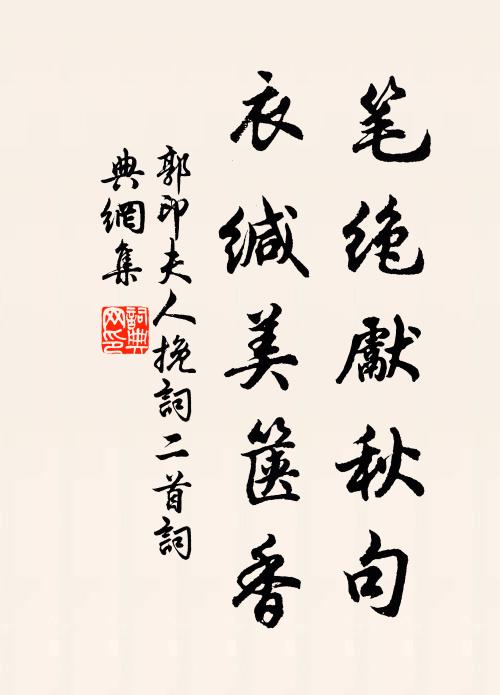 笔绝獻秋句
衣缄美篋香
郭印夫人挽詞二首詞
典網集
詞典网印